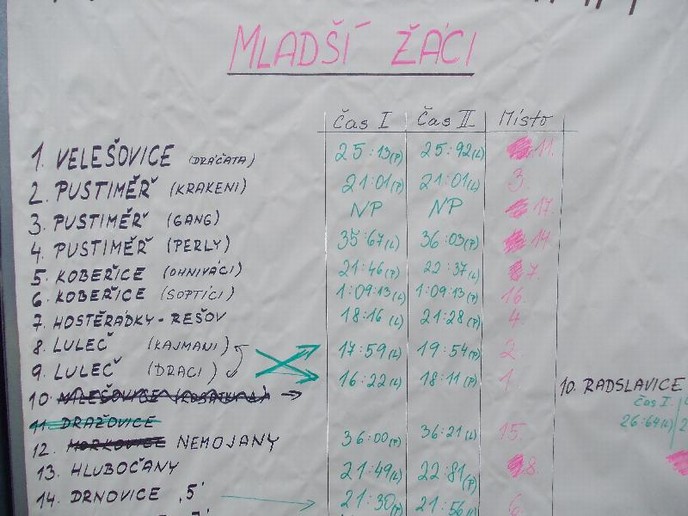 MLADŠÍ ŽÁCI
Čas I Čas II Místo
1. VELEŠOVICE (DRÁČATA) 25:13(P) 25:92(L) 11.
2. PUSTIMĚŘ (KRAKENI) 21:01(P) 21:01(L) 3.
3. PUSTIMĚŘ (GANG) NP NP 17.
4. PUSTIMĚŘ (PERLY) 35:67(L) 36:03(P) 14.
5. KOBEŘICE (OHNIVÁCI) 21:46(P) 22:37(L) 7.
6. KOBEŘICE (SOPTÍCI) 1:09:13(L) 1:09:13(P) 16.
7. HOSTĚRÁDKY-REŠOV 18:16(L) 21:28(P) 4.
8. LULEČ (KAJMANI) 17:59(L) 19:54(P) 2.
9. LULEČ (DRACI) 16:22(L) 18:11(P) 1.
10. VELEŠOVICE 10. RADSLAVICE
Čas I.
26:64(L)
11. DRAŽOVICE
12. MORKOVICE NEMOJANY 36:00(P) 36:21(L) 15.
13. HLUBOČANY 21:49(L) 22:81(P) 8.
14. DRNOVICE "5" 21:30(P) 21:56(L) 6.